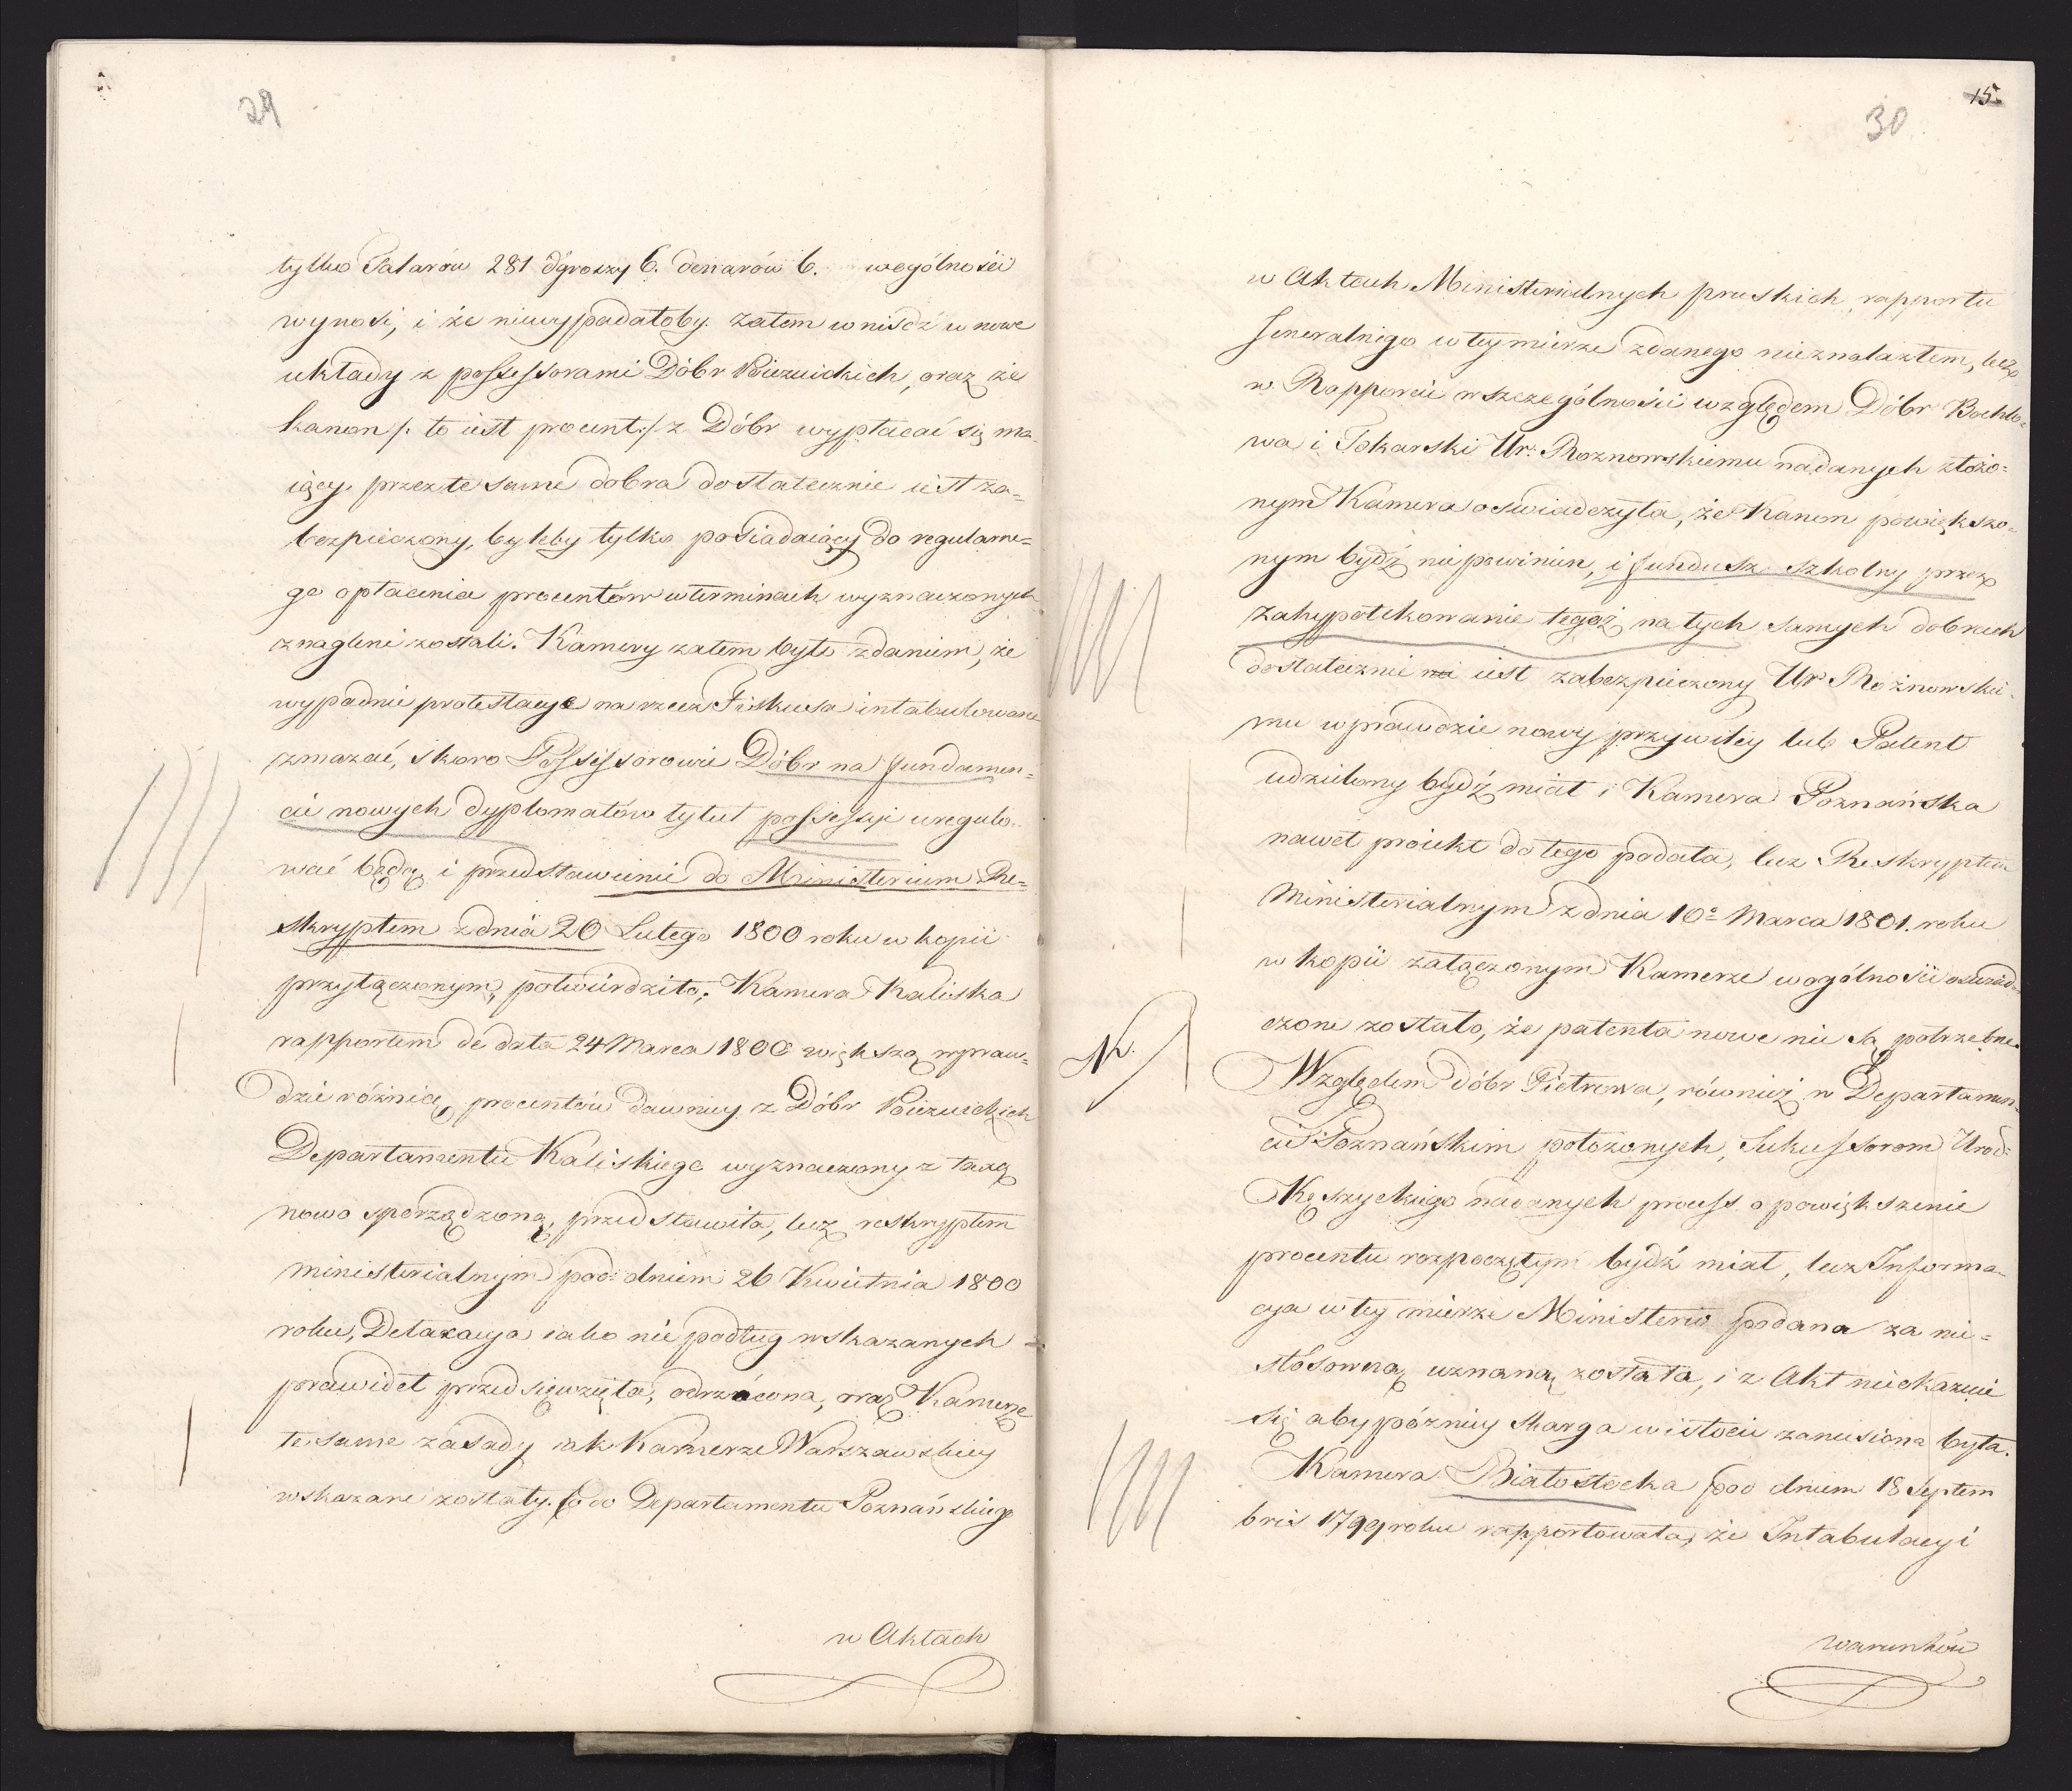 29
tylko Talarów 281 dgroszy 6. denarów 6. wególności
wynosi, i że niewypadałoby zatem wnisdź w nowe
układy z possessorami Dóbr Poiezuickich, oraz że
kanon /: to iest procent :/ z Dóbr wypłacać się ma-
iący przez te same dobra dostatecznie iest za-
bezpieczony, byleby tylko posiadaiący do regularne-
go opłacenia procentów w terminach wyznaczonych
znagleni zostali. Kamery zatem było zdaniem, że
wypadnie protestacye na rzecz Fiskusa intabulowane
zmazać, skoro Possessorowie Dóbr na fundamen-
cie nowych dyplomatów tytuł possessyi uregulo-
wać będą, i przedstawienie do Ministerium Re-
skryptem z dnia 20 Lutego 1800 roku w kopii
przyłączonym, potwierdziło; Kamera Kaliska
rapportem de dato 24 Marca 1800 większą wpraw-
dzie różnicę, procentów dawniey z Dóbr Poiezuickich
Departamentu Kaliskiego wyznaczony z taxą
nowo sporządzoną, przedstawiła, lecz reskryptem
ministerialnym pod dniem 26 Kwietnia 1800
roku, Detaxacya iako nie podług wskazanych
prawideł przedsięwzięta, odrzucona, oraz Kamerze
te same zasady iak Kamerze Warszawskiey
wskazane zostały. Co do Departamentu Poznańskiego
w Aktach
15.
30
w Aktach Ministerialnych pruskich, rapportu
Generalnego w teymierze zdanego nieznalazłem, lecz
w Rapporcie w szczególności względem Dóbr Bochlo-
wa i Tokarski Ur: Roznowskiemu nadanych złożo-
nym Kamera oswiadczyła, że Kanon powiększo-
nym bydź nie powinien, i fundusz szkolny przez
zahypotekowanie tegoż na tych samych dobrach
dostatecznie iest zabezpieczony Ur: Rożnowskie-
mu wprawdzie nowy przywiley lub Patent
udzielony bydź miał i Kamera Poznańska
nawet proiekt do tego podała, lecz Reskryptem
Ministerialnym z dnia 10º Marca 1801. roku
w kopii załączonym Kamerze wogólności oswiad-
czone zostało, że patenta nowe nie są potrzebne.
Względem dóbr Pietrowa, również w Departamen-
cie Poznańskim położonych, Sukcessorom Urod:
Kęszyckiego nadanych process o powiększenie
procentu rozpoczętym bydź miał, lecz Informa-
cya w tey mierze Ministerio podana za nie-
stósowną uznaną została, i z Akt nieokazuie
się aby późniey skarga w istocie zaniesiona była.
Kamera Białostocka pod dniem 18 Septem
bris 1799 roku rapportowała, że Intabulacyi
warunków